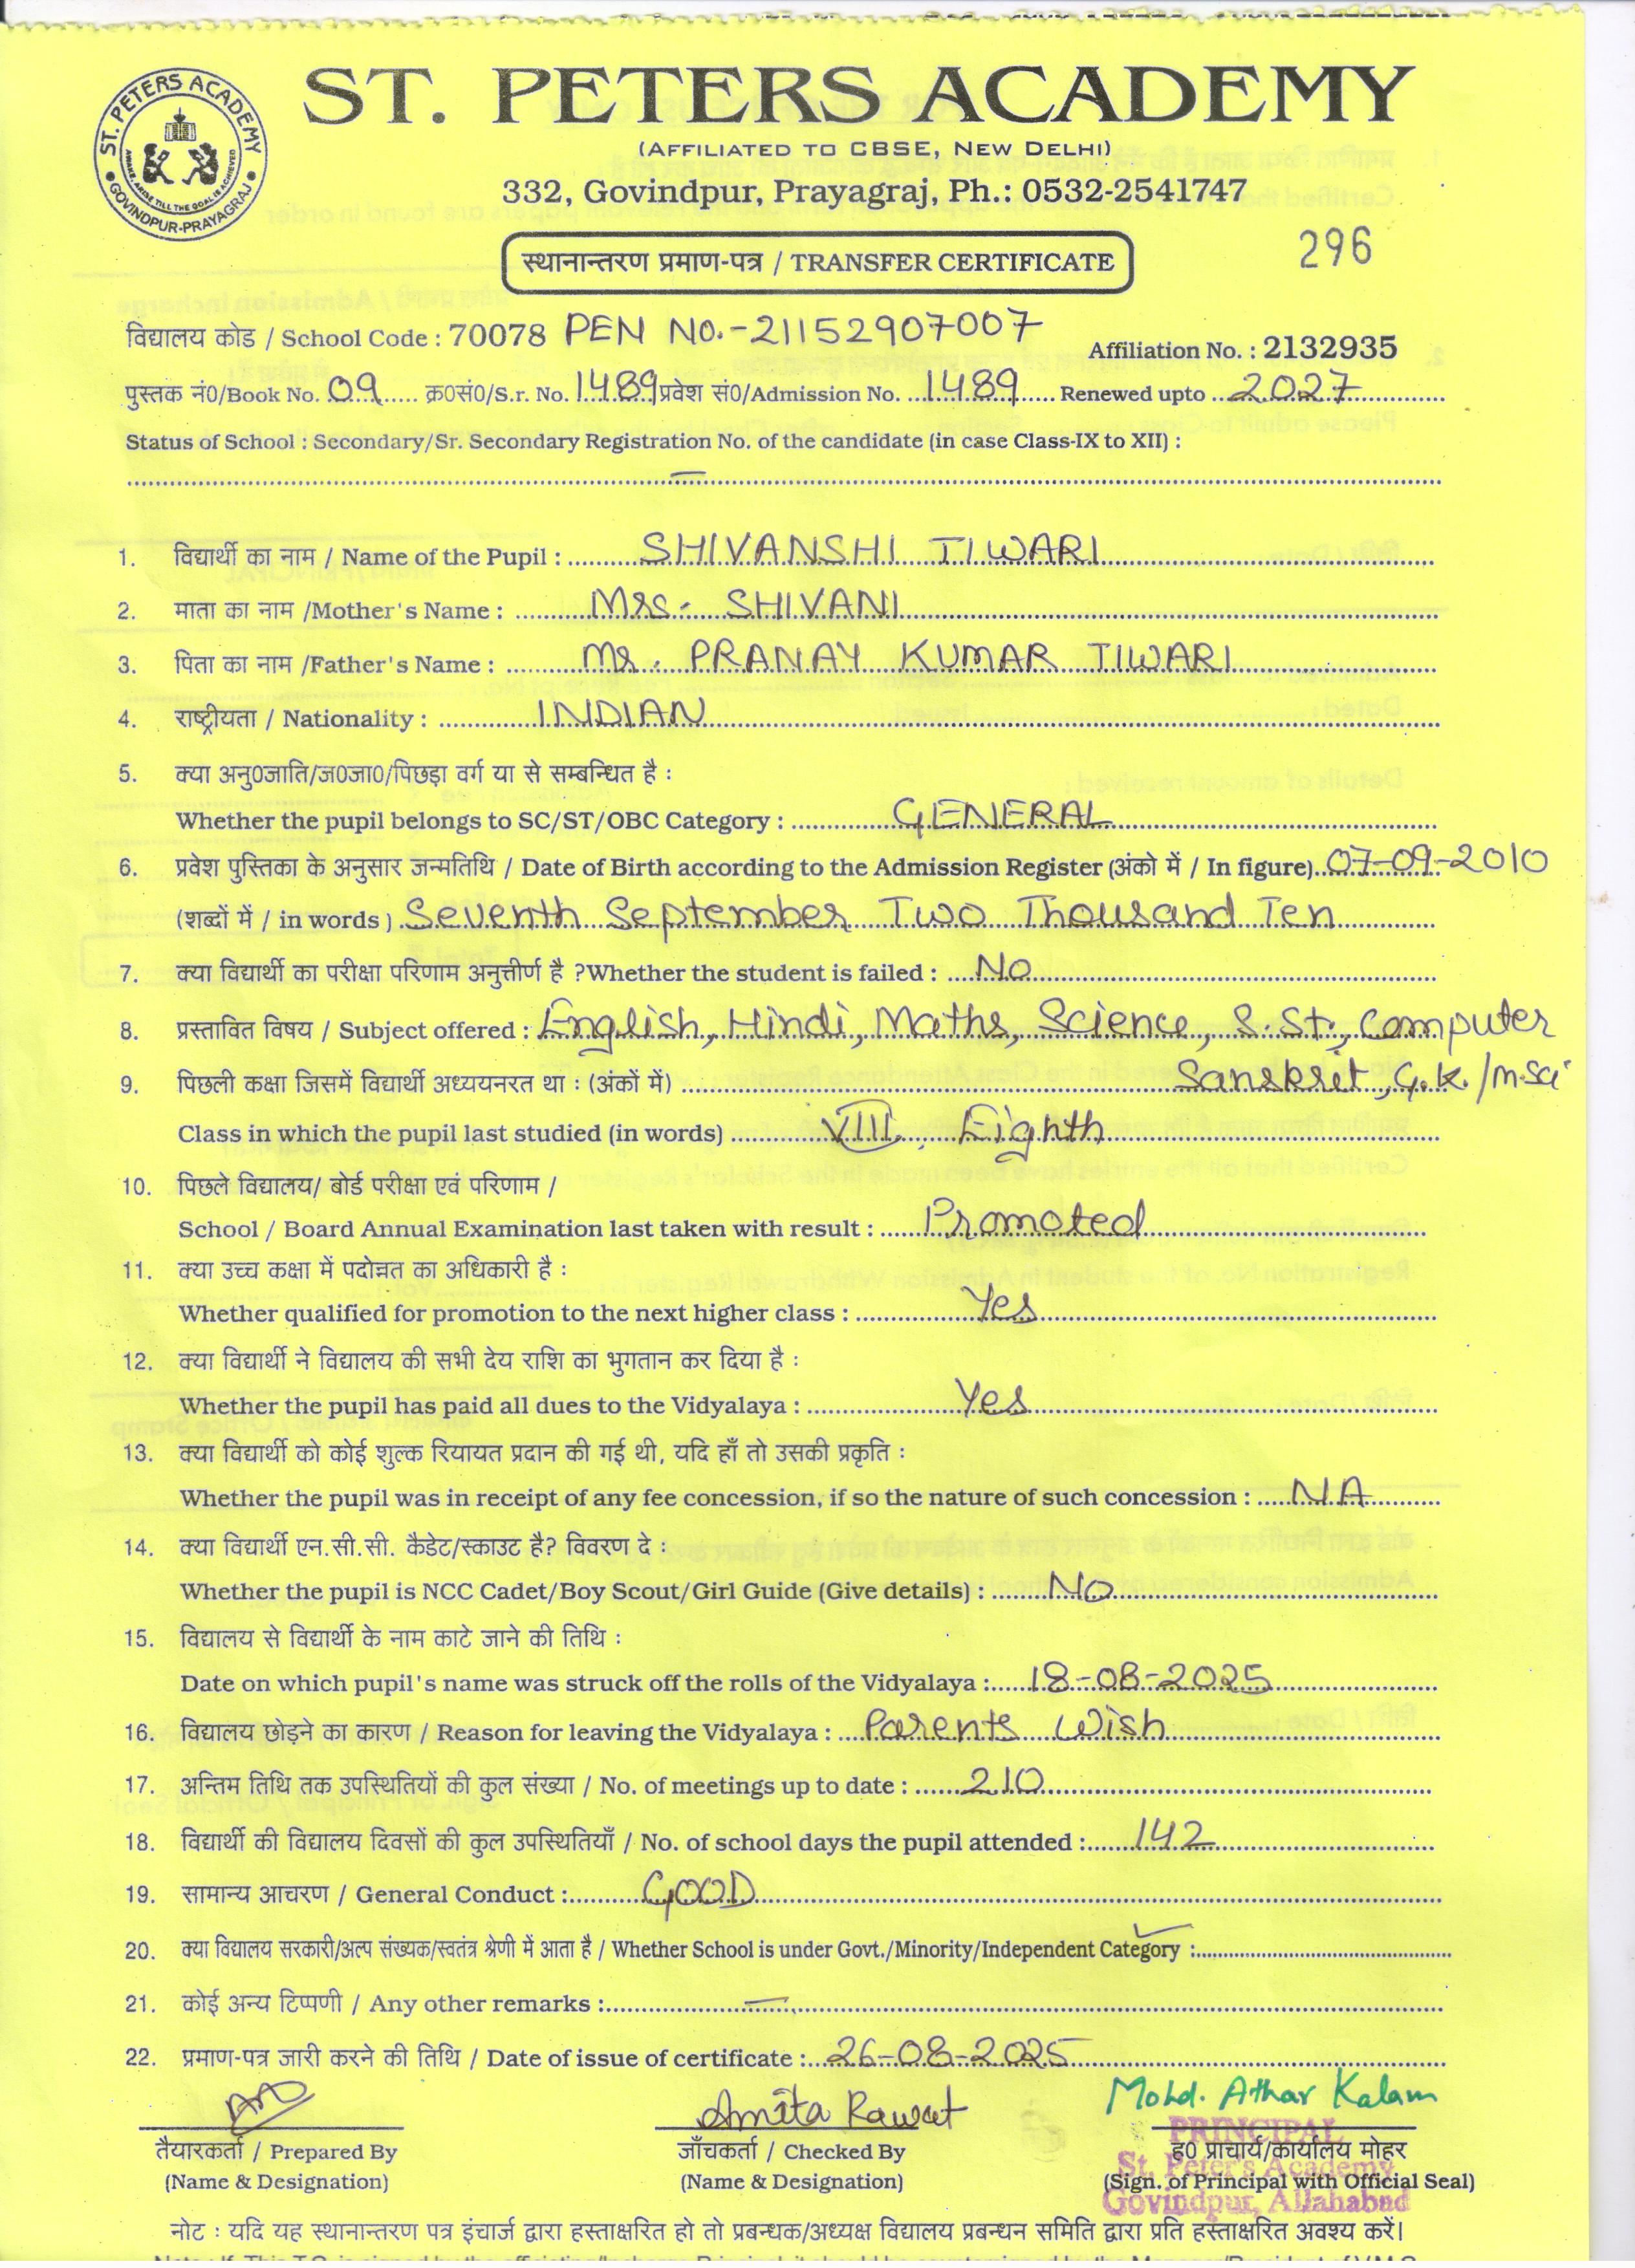 ST. PETERS ACADEMY
ST. PETERS ACADEMY
AWAKE, ARISE TILL THE GOAL IS ACHIEVED
GOVINDPUR-PRAYAGRAJ
(AFFILIATED TO CBSE, NEW DELHI)
332, Govindpur, Prayagraj, Ph.: 0532-2541747
स्थानान्तरण प्रमाण-पत्र / TRANSFER CERTIFICATE
296
विद्यालय कोड / School Code : 70078 PEN No.-21152907007 Affiliation No. : 2132935
पुस्तक नं0/Book No. 09 क्र0सं0/S.r. No. 1489 प्रवेश सं0/Admission No. 1489 Renewed upto 2027
Status of School : Secondary/Sr. Secondary Registration No. of the candidate (in case Class-IX to XII) :
—
1. विद्यार्थी का नाम / Name of the Pupil : SHIVANSHI TIWARI
2. माता का नाम /Mother's Name : Mrs. SHIVANI
3. पिता का नाम /Father's Name : Mr. PRANAY KUMAR TIWARI
4. राष्ट्रीयता / Nationality : INDIAN
5. क्या अनु0जाति/ज0जा0/पिछड़ा वर्ग या से सम्बन्धित है :
Whether the pupil belongs to SC/ST/OBC Category : GENERAL
6. प्रवेश पुस्तिका के अनुसार जन्मतिथि / Date of Birth according to the Admission Register (अंको में / In figure) 07-09-2010
(शब्दों में / in words ) Seventh September Two Thousand Ten
7. क्या विद्यार्थी का परीक्षा परिणाम अनुत्तीर्ण है ?Whether the student is failed : No
8. प्रस्तावित विषय / Subject offered : English, Hindi, Maths, Science, S.St., Computer
9. पिछली कक्षा जिसमें विद्यार्थी अध्ययनरत था : (अंकों में) Sanskrit, G.K./M.Sci
Class in which the pupil last studied (in words) VIII, Eighth
10. पिछले विद्यालय/ बोर्ड परीक्षा एवं परिणाम /
School / Board Annual Examination last taken with result : Promoted
11. क्या उच्च कक्षा में पदोन्नत का अधिकारी है :
Whether qualified for promotion to the next higher class : Yes
12. क्या विद्यार्थी ने विद्यालय की सभी देय राशि का भुगतान कर दिया है :
Whether the pupil has paid all dues to the Vidyalaya : Yes
13. क्या विद्यार्थी को कोई शुल्क रियायत प्रदान की गई थी, यदि हाँ तो उसकी प्रकृति :
Whether the pupil was in receipt of any fee concession, if so the nature of such concession : NA
14. क्या विद्यार्थी एन.सी.सी. कैडेट/स्काउट है? विवरण दे :
Whether the pupil is NCC Cadet/Boy Scout/Girl Guide (Give details) : NO
15. विद्यालय से विद्यार्थी के नाम काटे जाने की तिथि :
Date on which pupil's name was struck off the rolls of the Vidyalaya : 18-08-2025
16. विद्यालय छोड़ने का कारण / Reason for leaving the Vidyalaya : Parents Wish
17. अन्तिम तिथि तक उपस्थितियों की कुल संख्या / No. of meetings up to date : 210
18. विद्यार्थी की विद्यालय दिवसों की कुल उपस्थितियाँ / No. of school days the pupil attended : 142
19. सामान्य आचरण / General Conduct : GOOD
20. क्या विद्यालय सरकारी/अल्प संख्यक/स्वतंत्र श्रेणी में आता है / Whether School is under Govt./Minority/Independent Category :
21. कोई अन्य टिप्पणी / Any other remarks : —
22. प्रमाण-पत्र जारी करने की तिथि / Date of issue of certificate : 26-08-2025
Amita Rawat Mohd. Athar Kalam
PRINCIPAL
तैयारकर्ता / Prepared By जाँचकर्ता / Checked By ह0 प्राचार्य/कार्यालय मोहर
St. Peter's Academy
(Name & Designation) (Name & Designation) (Sign. of Principal with Official Seal)
Govindpur, Allahabad
नोट : यदि यह स्थानान्तरण पत्र इंचार्ज द्वारा हस्ताक्षरित हो तो प्रबन्धक/अध्यक्ष विद्यालय प्रबन्धन समिति द्वारा प्रति हस्ताक्षरित अवश्य करें।